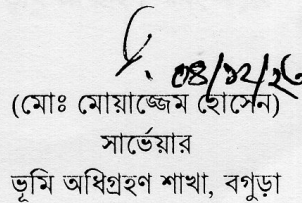 ০৪/১২/২৩
(মোঃ মোয়াজ্জেম হোসেন)
সার্ভেয়ার
ভূমি অধিগ্রহণ শাখা, বগুড়া